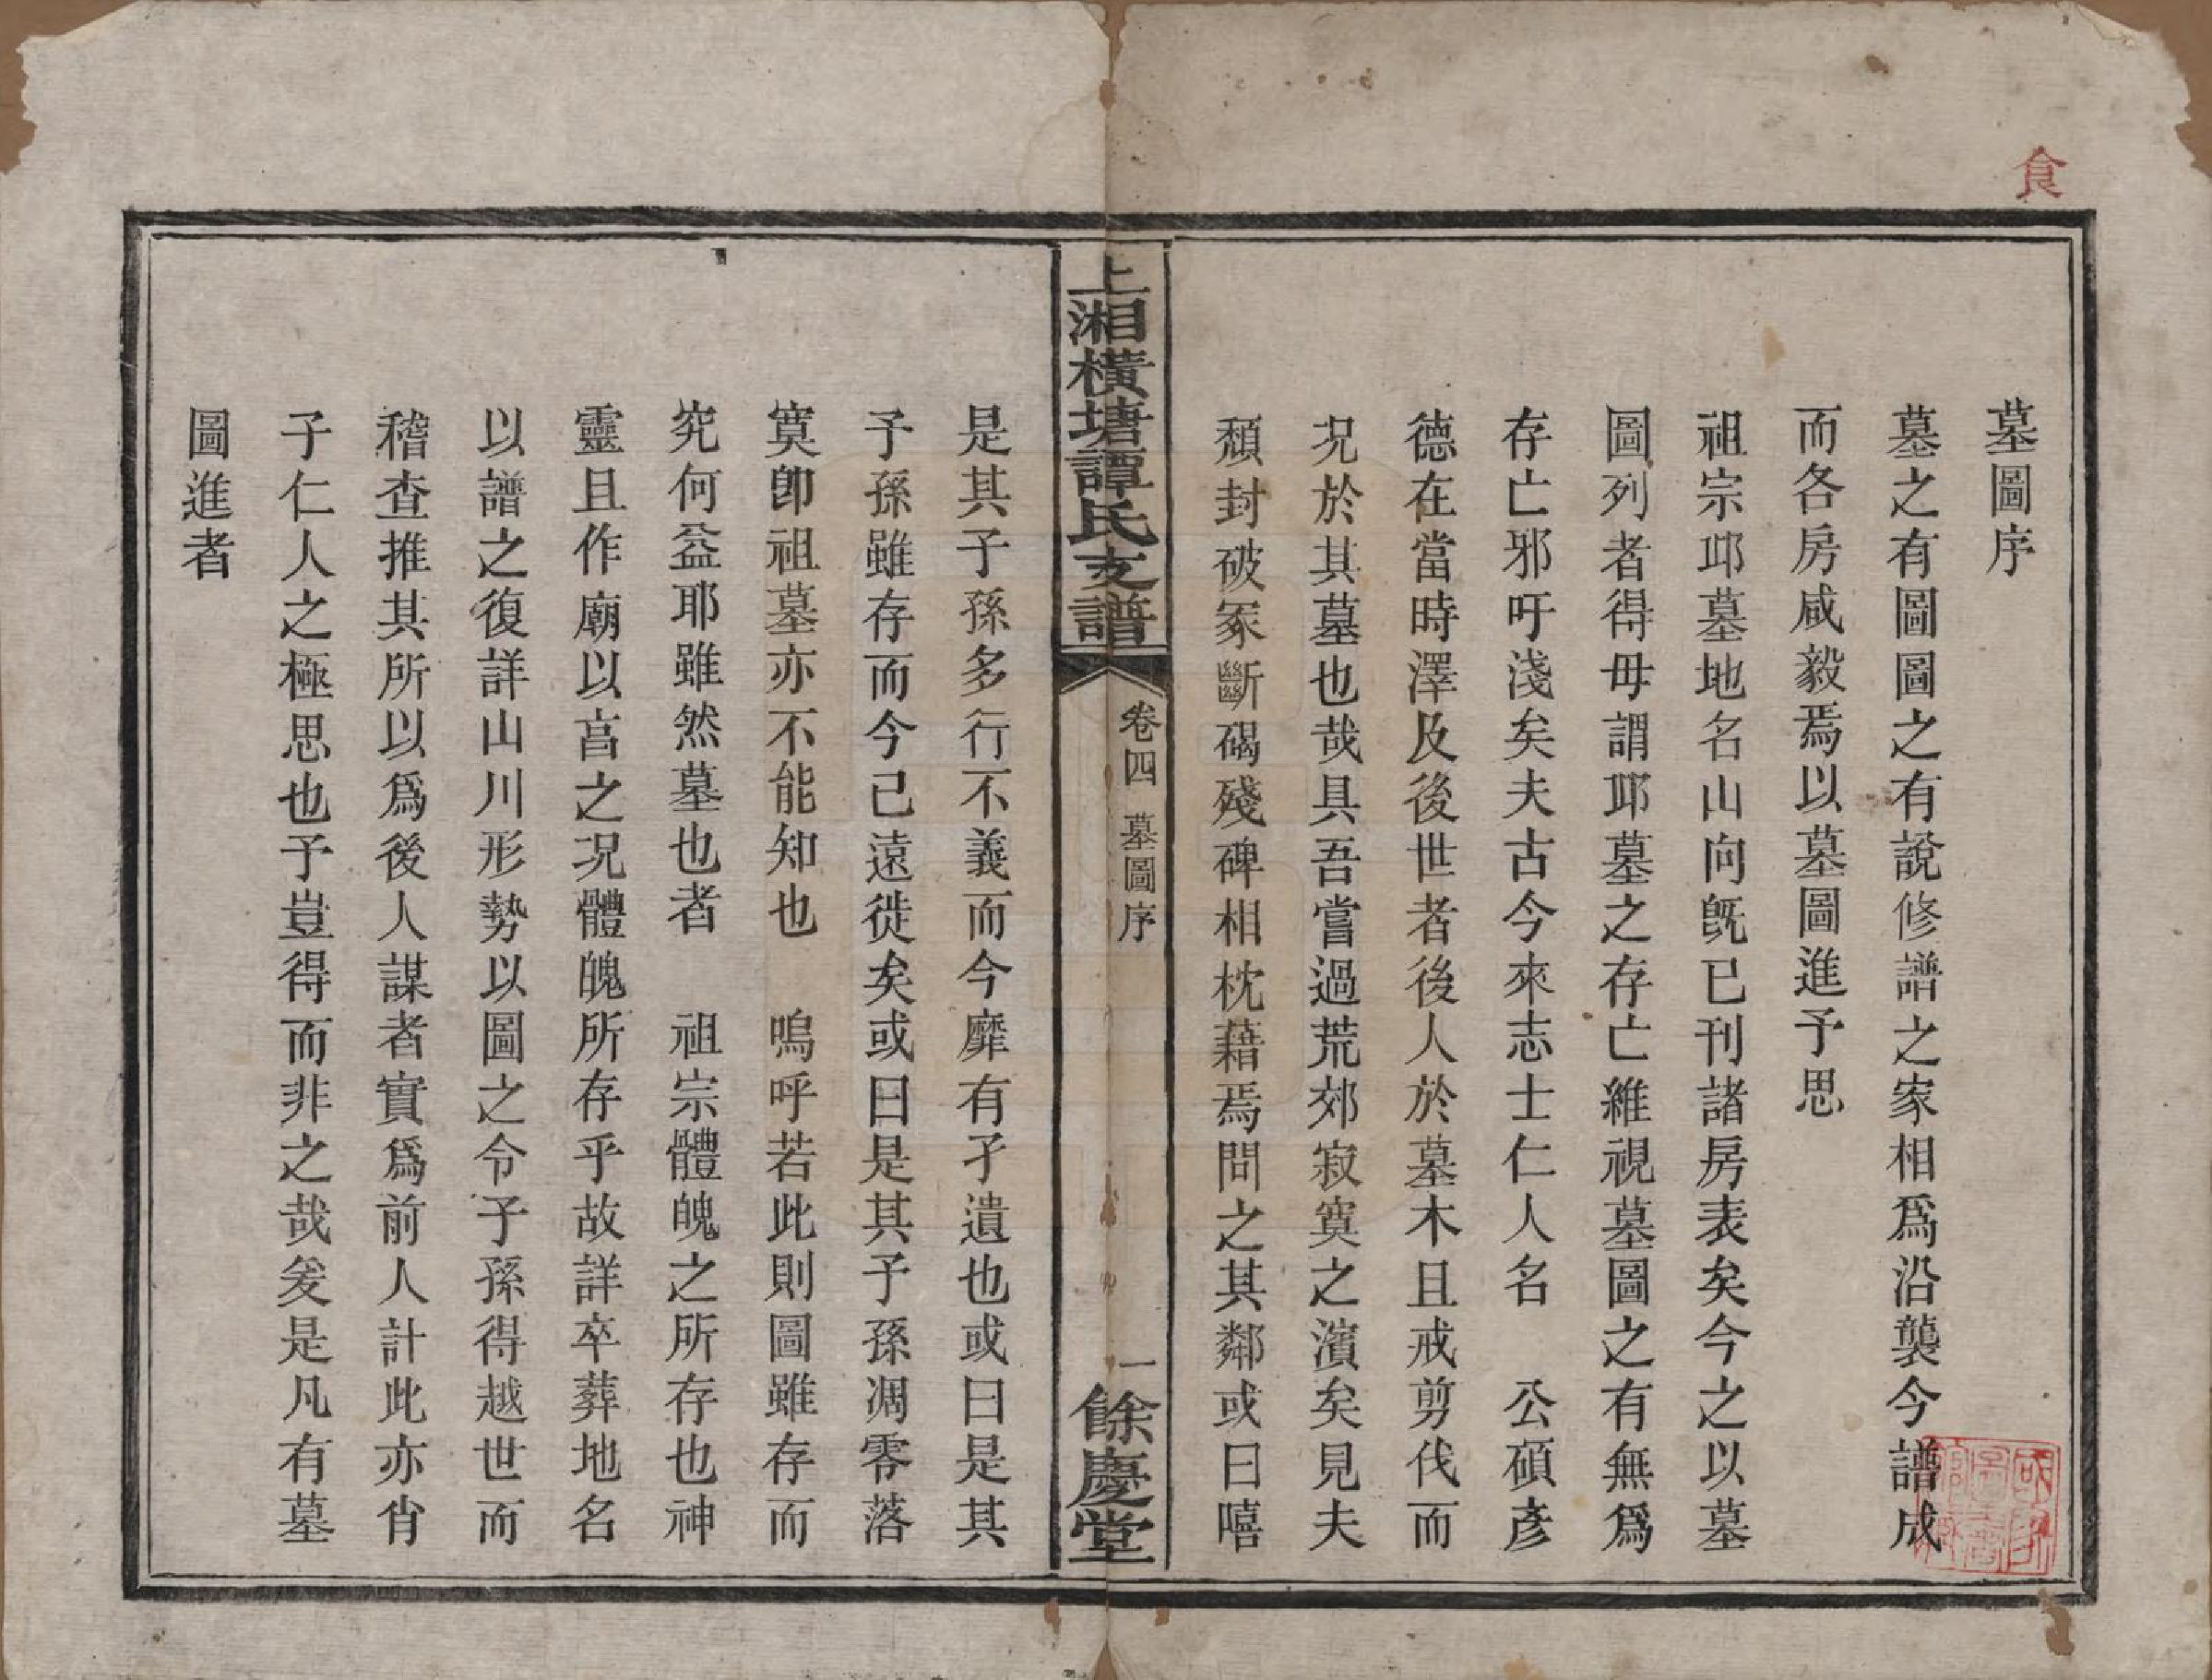 食
墓圖序
墓之有圖圖之有說修譜之家相爲沿襲今譜成
而各房咸毅焉以墓圖進予思
祖宗邱墓地名山向旣已刊諸房表矣今之以墓
圖列者得毋謂邱墓之存亡維視墓圖之有無爲
存亡邪吁淺矣夫古今來志士仁人名　公碩彥
德在當時澤及後世者後人於墓木且戒剪伐而
況於其墓也哉具吾嘗過荒郊寂寞之濱矣見夫
頹封破冢斷碣殘碑相枕藉焉問之其鄰或曰嘻
上湘橫塘譚氏支譜
卷四　墓圖序
一
餘慶堂
是其子孫多行不義而今靡有孑遺也或曰是其
子孫雖存而今已遠徙矣或曰是其子孫凋零落
寞卽祖墓亦不能知也　嗚呼若此則圖雖存而
究何益耶雖然墓也者　祖宗體魄之所存也神
靈且作廟以亯之况體魄所存乎故詳卒葬地名
以譜之復詳山川形勢以圖之令子孫得越世而
稽查推其所以爲後人謀者實爲前人計此亦肖
子仁人之極思也予豈得而非之哉爰是凡有墓
圖進者